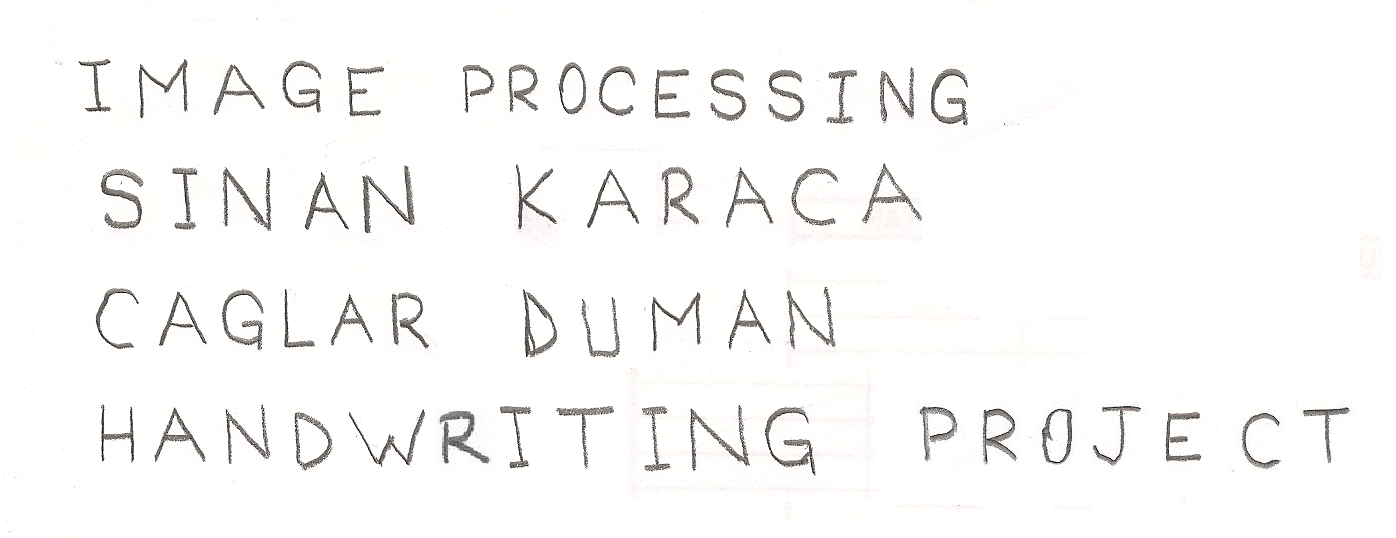 IMAGE PROCESSING
SINAN KARACA
CAGLAR DUMAN
HANDWRITING PROJECT